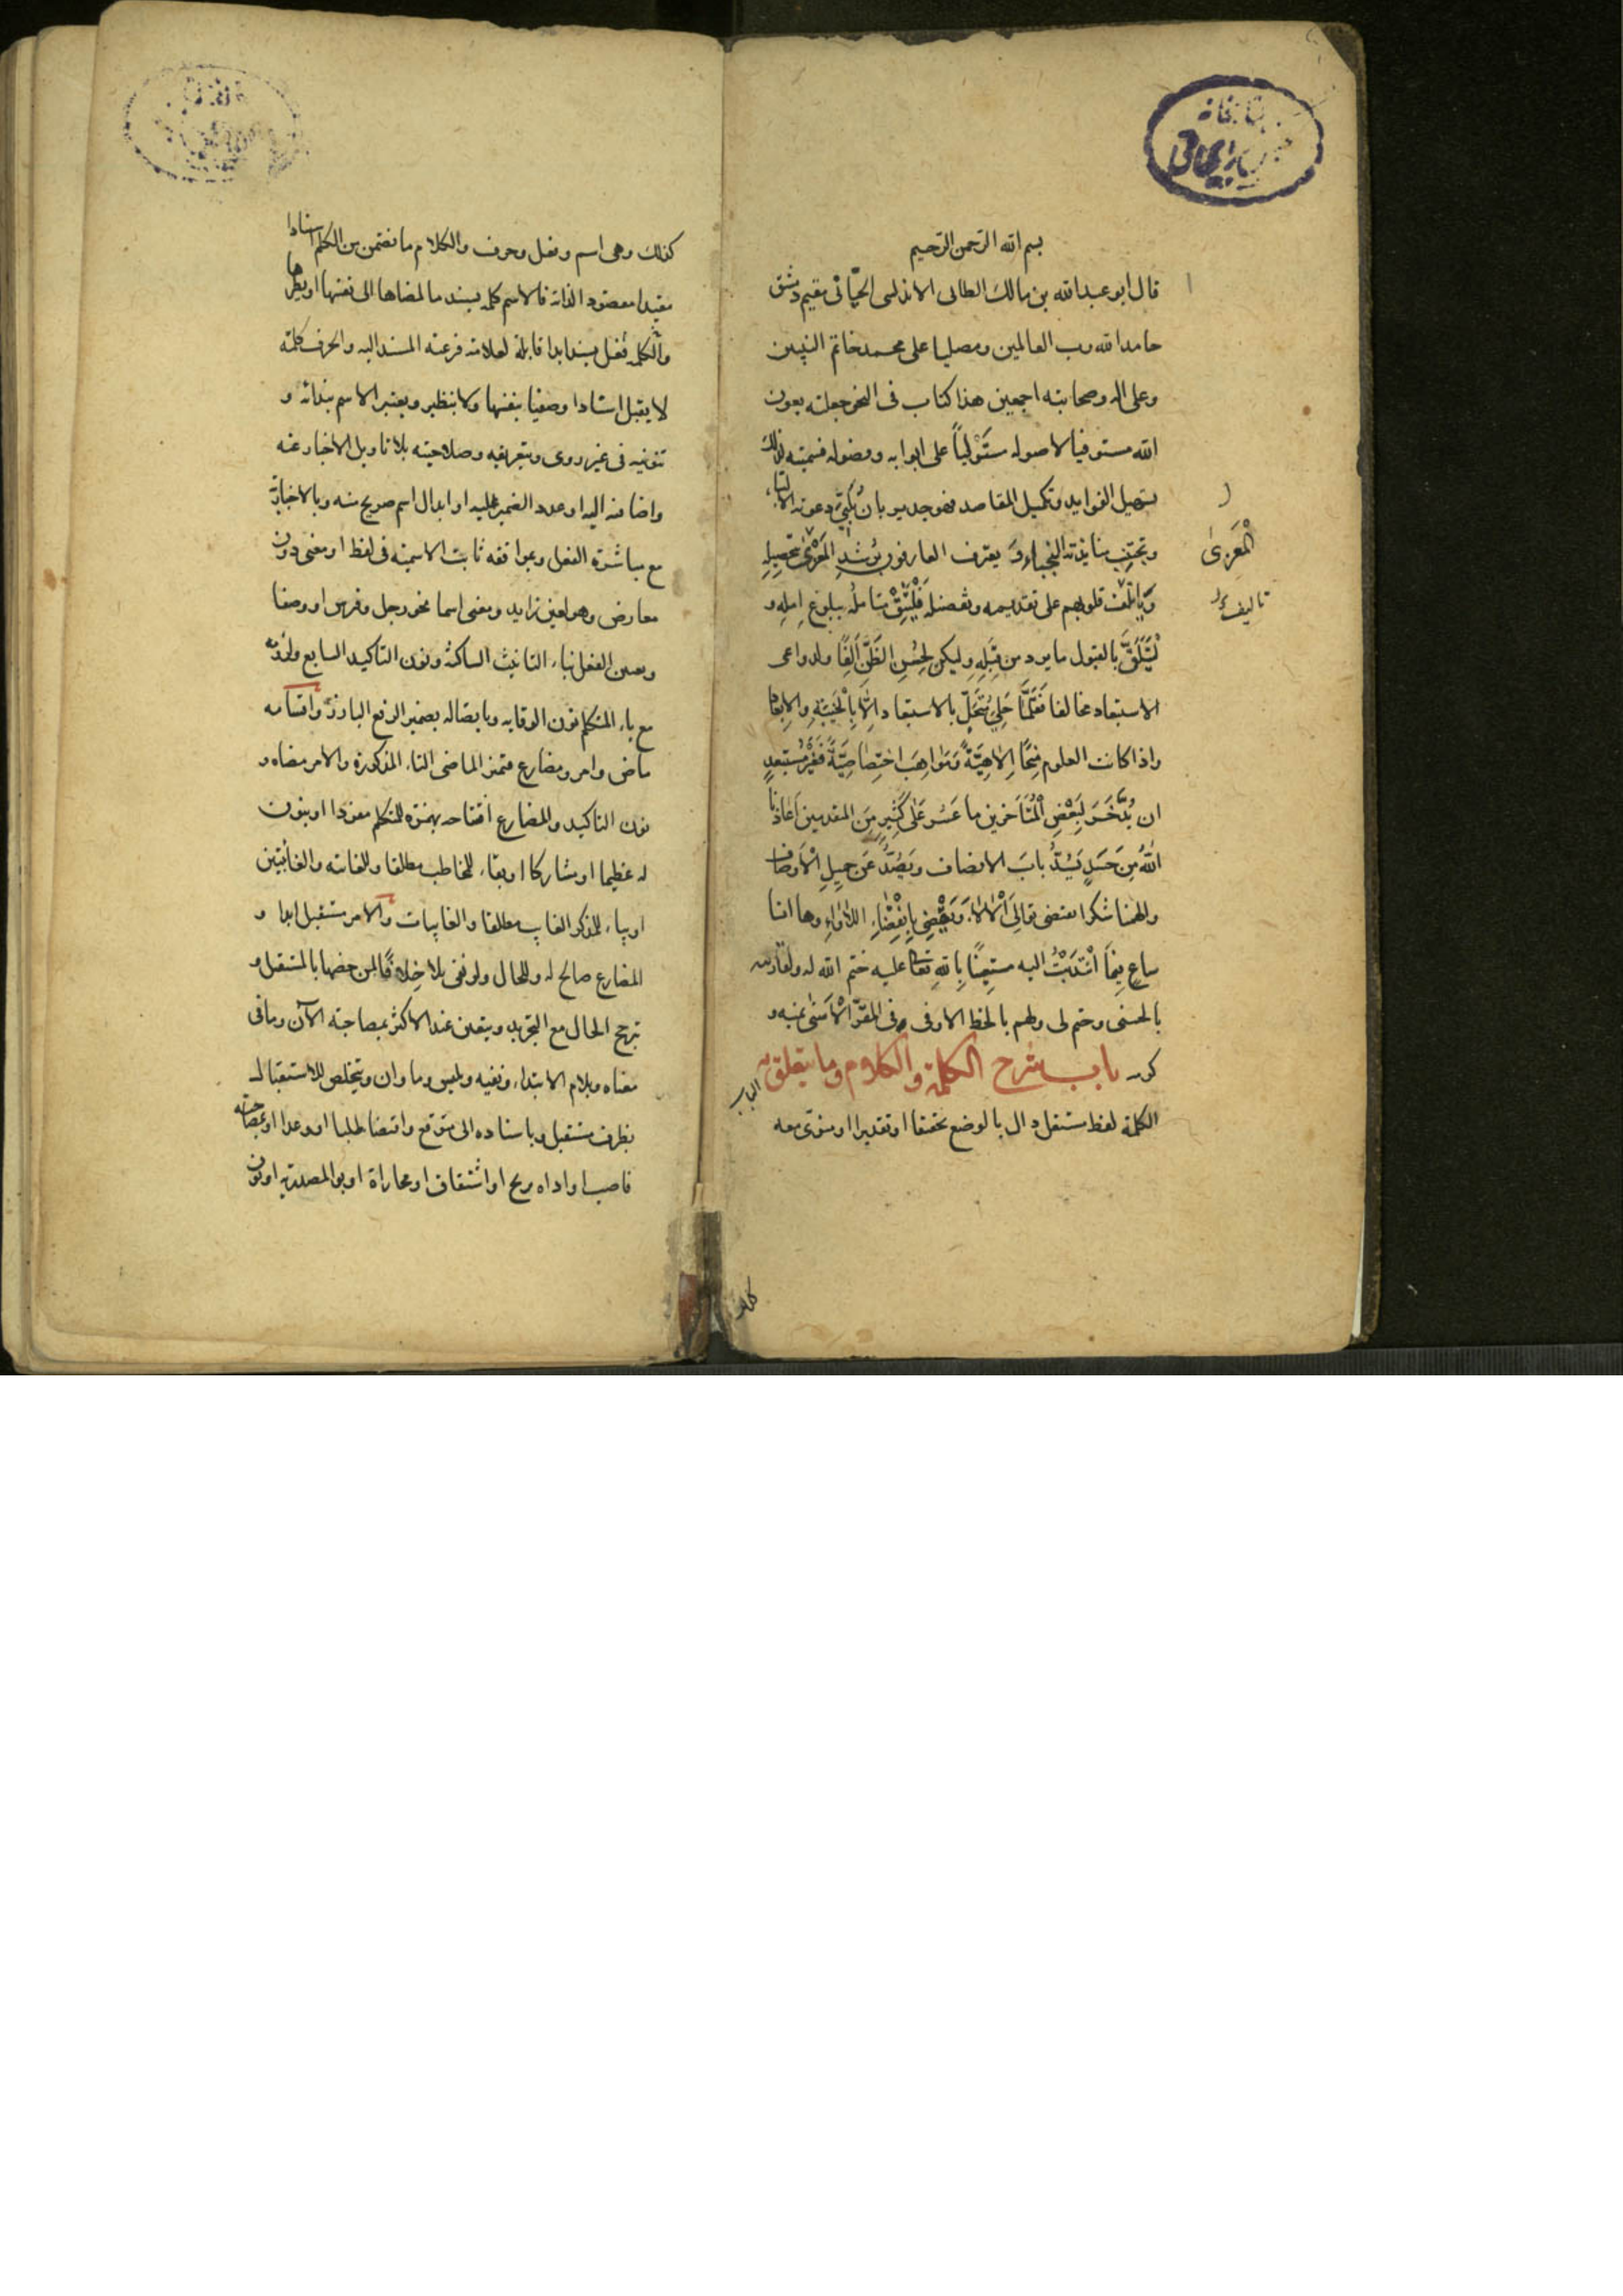 بسم الله الرحمن الرحيم
قال ابو عبد الله بن مالك الطائى الاندلسى الجيّانى مقيم دمشق
حامدا لله رب العالمين ومصليا على محمد خاتم النبيين
وعلى اله وصحابته اجمعين هذا كتاب فى النحو جعلته بعون
الله مستوفيا لاصوله مستوليا على ابوابه وفصوله فسميته لذلك
تسهيل الفوايد وتكميل المقاصد فهو جدير بان يلبّى دعوته الالباء
ويجتنب منابذته النجباء و يعترف العارفون برشد المغرى بتحصيله
وتاتلف قلوبهم على تقديمه وتفضيله فليثق متامله ببلوغ امله و
ليتلقّ بالقبول ما يرد من قبله وليكن لحسن الظن الفا ولدواعى
الاستبعاد مخالفا فقلّما حلى متحلّ بالاستبعاد الا بالخيبة والابعاد
واذا كانت العلوم منحا الاهيّة ومواهب اختصاصيّة فغير مستبعد
ان يدّخر لبعض المتاخرين ما عسر على كثير من المتقدمين اعاذنا
الله من حسد يسدّ باب الانصاف ويصدّ عن جميل الاوصاف
والهمنا شكرا يقتضى توالى الالاء ويقضى بانقضاء اللاواء وها انا
ساع فيما انتدبت اليه مستعينا بالله تعالى عليه ختم الله لى ولقارئيه
بالحسنى وختم لى ولهم بالحظ الاوفى فى المقرّ الاسنى بمنه و
كرمه باب شرح الكلمة والكلام وما يتعلق به
الكلمة لفظ مستقل دال بالوضع تحقيقا او تقديرا او منوى معه
المغرى
تاليف
كذلك
كذلك وهى اسم وفعل وحرف والكلام ما تضمن من الكلم اسنادا
مفيدا مقصودا لذاته فالاسم كلمة يسند ما لمعناها الى نفسها او نظيرها
والكلمة فعل يسند ابدا قابلة لعلامة فرعية المسند اليه والحرف كلمة
لا يقبل اسنادا وضعيا بنفسها ولا بنظير ويعتبر الاسم بندائه و
تنوينه فى غير روى وبتعريفه وصلاحيته بلا تاويل لاخبار عنه
واضافته اليه او عود الضمير عليه او ابدال اسم صريح منه وبالاخبار به
مع مباشرة الفعل وبموافقة ثابت الاسمية فى لفظ او معنى دون
معارض وهو لعين زايد ومعنى اسما نحو رجل وفرس او وصفا
ويعتبر الفعل بتاء التانيث الساكنة ونون التاكيد الشايع ولزومه
مع ياء المتكلم نون الوقاية وباتصاله بضمير الرفع البارز واقسامه
ماض وامر ومضارع فتميز الماضى التاء المذكورة والامر معناه و
نون التاكيد والمضارع افتتاحه بهمزة للمتكلم مفردا او بنون
له عظيما او مشاركا او بتاء للمخاطب مطلقا وللغائبة والغائبتين
او بياء للمذكر الغايب مطلقا والغايبات والامر مستقبل ابدا و
المضارع صالح له وللحال ولو نفى بلا خلافا لمن خصها بالمستقبل و
ترجح الحال مع التجريد ويتعين عند الاكثر بمصاحبة الآن وما فى
معناه وبلام الابتداء ونفيه بليس وما وان ويتخلص للاستقبال
بظرف مستقبل وباسناده الى متوقع واقتضائه طلبا او وعدا او بمصاحبة
ناصب او اداة ترج او اشفاق او مجازاة او لو المصدرية او نون